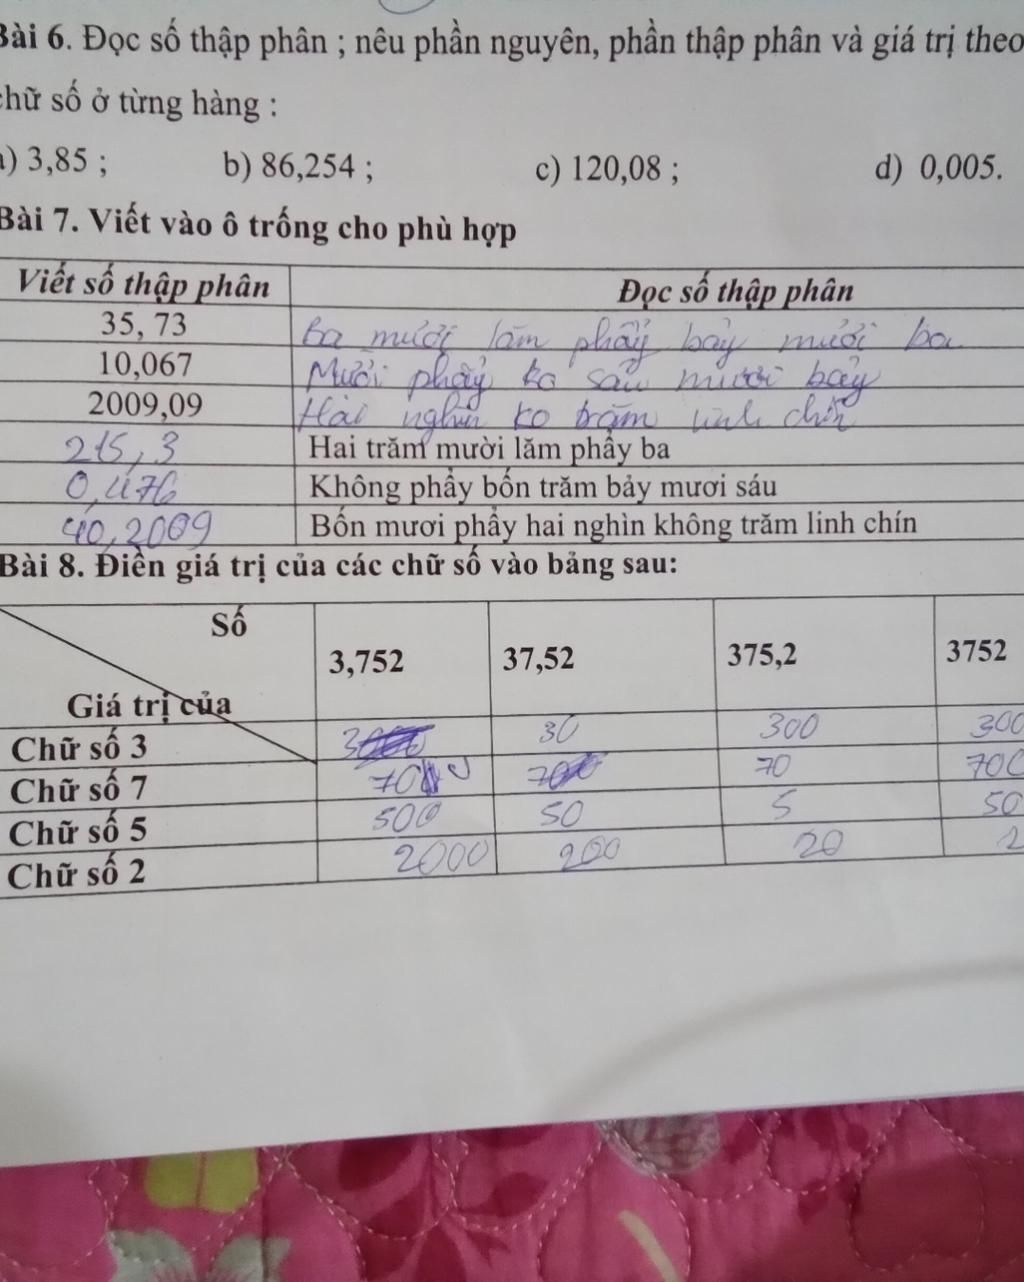 Bài 6. Đọc số thập phân ; nêu phần nguyên, phần thập phân và giá trị theo
chữ số ở từng hàng :
a) 3,85 ; b) 86,254 ; c) 120,08 ; d) 0,005.
Bài 7. Viết vào ô trống cho phù hợp
Viết số thập phân Đọc số thập phân
35, 73 Ba mươi lăm phẩy bảy mươi ba
10,067 Mười phẩy ko sáu mươi bảy
2009,09 Hai nghìn ko trăm linh chín
215,3 Hai trăm mười lăm phẩy ba
0,476 Không phẩy bốn trăm bảy mươi sáu
40,2009 Bốn mươi phẩy hai nghìn không trăm linh chín
Bài 8. Điền giá trị của các chữ số vào bảng sau:
Số
Giá trị của 3,752 37,52 375,2 3752
Chữ số 3 3 30 300 300
Chữ số 7 70 70 700
Chữ số 5 500 50 5 50
Chữ số 2 2000 200 20 2